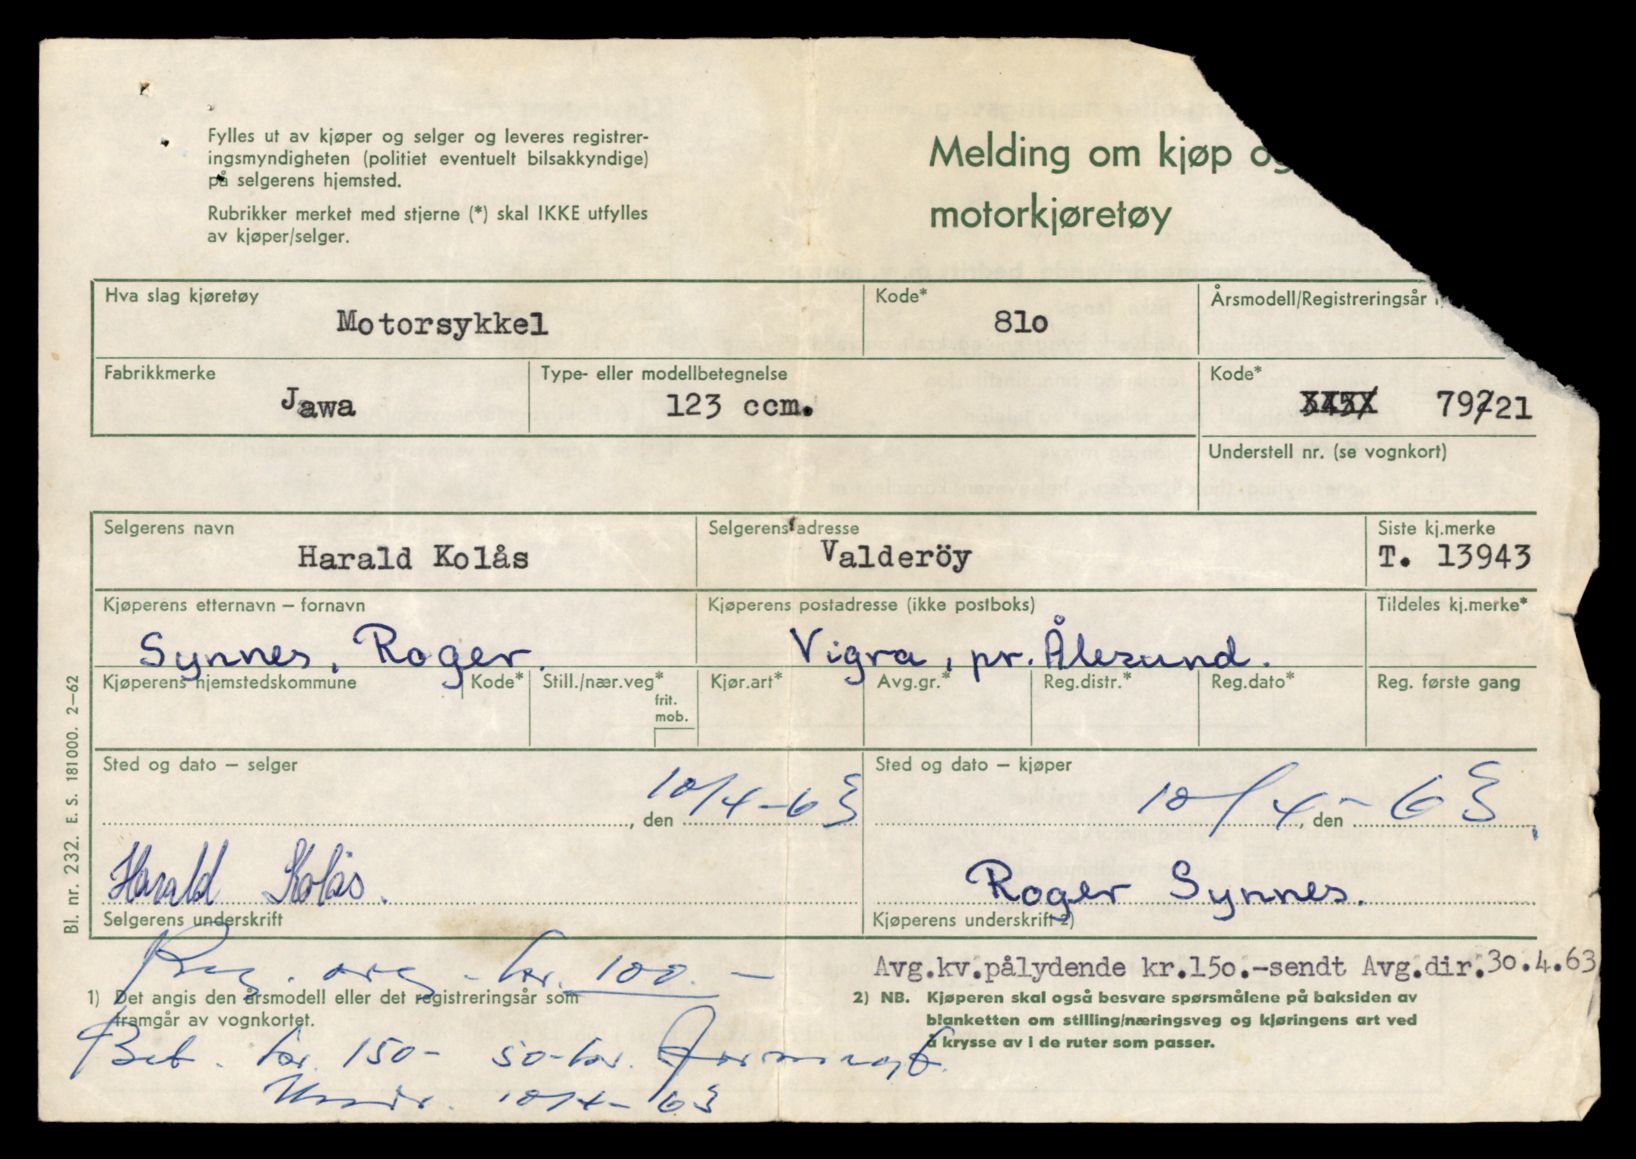 Fylles ut av kjøper og selger og leveres registrer-
ingsmyndigheten (politiet eventuelt bilsakkyndige)
på selgerens hjemsted.
Rubrikker merket med stjerne (*) skal IKKE utfylles
av kjøper/selger.
Melding om kjøp og
motorkjøretøy
Hva slag kjøretøy
Motorsykkel
Kode*
81o
Årsmodell/Registreringsår
Fabrikkmerke
Jawa
Type- eller modellbetegnelse
123 ccm.
Kode*
79221
Understell nr. (se vognkort)
Selgerens navn
Harald Kolås
Selgerens adresse
Valderöy
Siste kj.merke
T. 13943
Kjøperens etternavn – fornavn
Synnes, Roger.
Kjøperens postadresse (ikke postboks)
Vigra, pr. Ålesund.
Tildeles kj.merke*
Kjøperens hjemstedskommune
Kode*
Still./nær.veg*
frit.
mob.
Kjør.art*
Avg.gr.*
Reg.distr.*
Reg.dato*
Reg. første gang
Sted og dato – selger
, den 10/4-63
Harald Kolås.
Selgerens underskrift
Sted og dato – kjøper
10/4-63
, den
Roger Synnes.
Kjøperens underskrift 2)
Bl. nr. 232. E. S. 181000. 2–62
Reg. avg. kr. 100.-
Avg.kv.pålydende kr.15o.-sendt Avg.dir.3o.4.63
1) Det angis den årsmodell eller det registreringsår som
framgår av vognkortet.
2) NB. Kjøperen skal også besvare spørsmålene på baksiden av
blanketten om stilling/næringsveg og kjøringens art ved
å krysse av i de ruter som passer.
Bet. kr. 150- 50-kr.
10/4-63